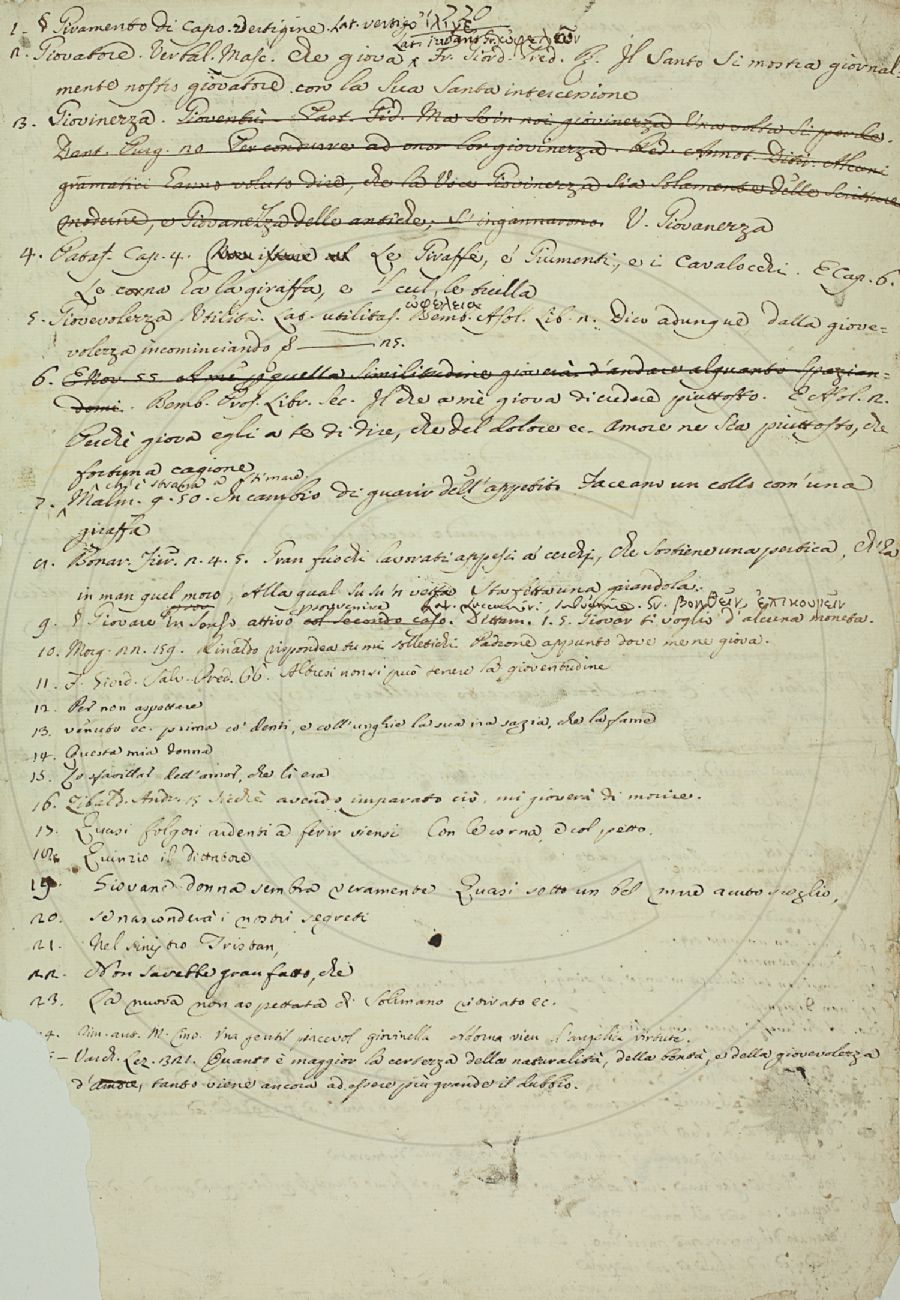 1. § Giramento di Capo. Vertigine. Lat. vertigo
Lat. iuvans. Gr.
2. Giovatore. Verbal. Masc. Che giova Fr. Giord. Pred. R. Il Santo si mostra giornal-
mente nostro giovatore con la sua santa intercessione
3. Giovinezza. Gioventù. Past. Fid. Ma se in noi giovinezza Una volta si perde.
Dant. Purg. 20 Per condurre ad onor lor giovinezza. Red. Annot. Ditir. Alcuni
gramatici hanno voluto dire, che la voce Giovinezza sia solamente delle scritture
moderne, e Giovanezza delle antiche; s'ingannarono. V. Giovanezza
4. Pataf. Cap. 4. Le Giraffe, e Giumenti, e i Cavalocchi. E Cap. 6.
Le corna ha la giraffa, e 'l cul le brilla
ὠφέλεια
5. Giovevolezza Utilità. Lat. utilitas. Bemb. Asol. Lib. 2. Dico adunque dalla giove-
volezza incominciando § 25.
6. E Nov. 55 A me quella similitudine gioverà d'andare alquanto spazian-
domi. Bemb. Pros. Libr. Sec. Il che a me giova di credere piuttosto. E Asol. 2.
Perchè giova egli a te di dire, che del dolore ec. Amore ne sia piuttosto, che
fortuna cagione
ch'è strana a stimare
7. Malm. 9. 50. In cambio di guarir dell'appetito Faceano un collo com'una
giraffa
8. Bonar. Fier. 2. 4. 5. Gran fuochi lavorati appesi a' cerchj, che sostiene una pertica, ch'ha
in man quel moro, Alla qual su su 'n vetta Sta fitta una girandola.
provvenire Lat. βοηθεῖν, ἐπικουρεῖν
9. § Giovare in senso attivo col secondo caso. Dittam. 1. 5. Giovar ti voglio d'alcuna moneta.
10. Morg. 22. 159. Rinaldo rispondea tu mi solletichi Padrone appunto dove me ne giova.
11. F. Giord. Salv. Pred. 66. Altresì non si può tenere la gioventudine
12. Per non aspettare
13. venuto ec. prima co' denti, e coll'unghie la sua ira sazia, che la fame
14. Questa mia donna
15. Lo sfavillar dell'amor, che lì era
16. Zibald. Andr. 15 Sicchè avendo imparato ciò, mi gioverà di morire.
17. Quasi folgori ardenti a ferir viensi Con le corna, e col petto.
18. Quinzio il dittatore
19. Giovane donna sembra veramente Quasi sotto un bel mare acuto scoglio,
20. se nasconderà i nostri segreti
21. Nel sinistro Tristan,
22. Non sarebbe gran fatto, che
23. La nuova non aspettata di Solimano ritirato ec.
4. Rim. ant. M. Cino. Una gentil piacevol giovinella Adorna vien d'angelica virtute.
5 - Varch. Lez. 321. Quanto è maggior la certezza della naturalità, della bontà, e della giovevolezza
d'amore, tanto viene ancora ad essere più grande il dubbio.